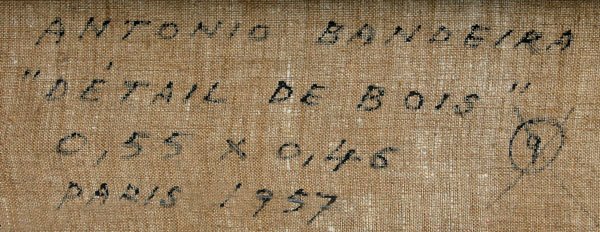 ANTONIO BANDEIRA
"DÉTAIL DE BOIS"
0,55 x 0,46
9
PARIS 1957